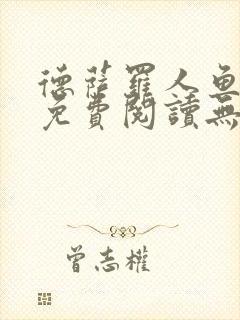 德薩羅人魚
免費閱讀無
曾志權